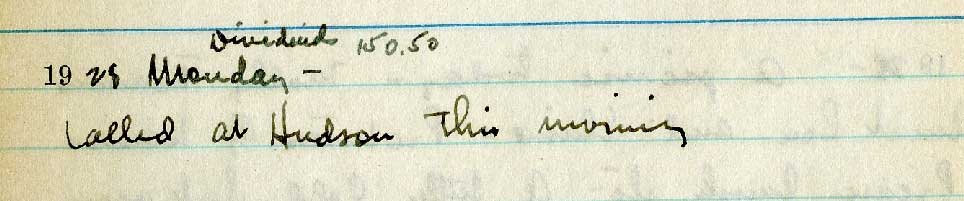 Dividends 150.50
1928 Monday –
Called at Hudson this morning